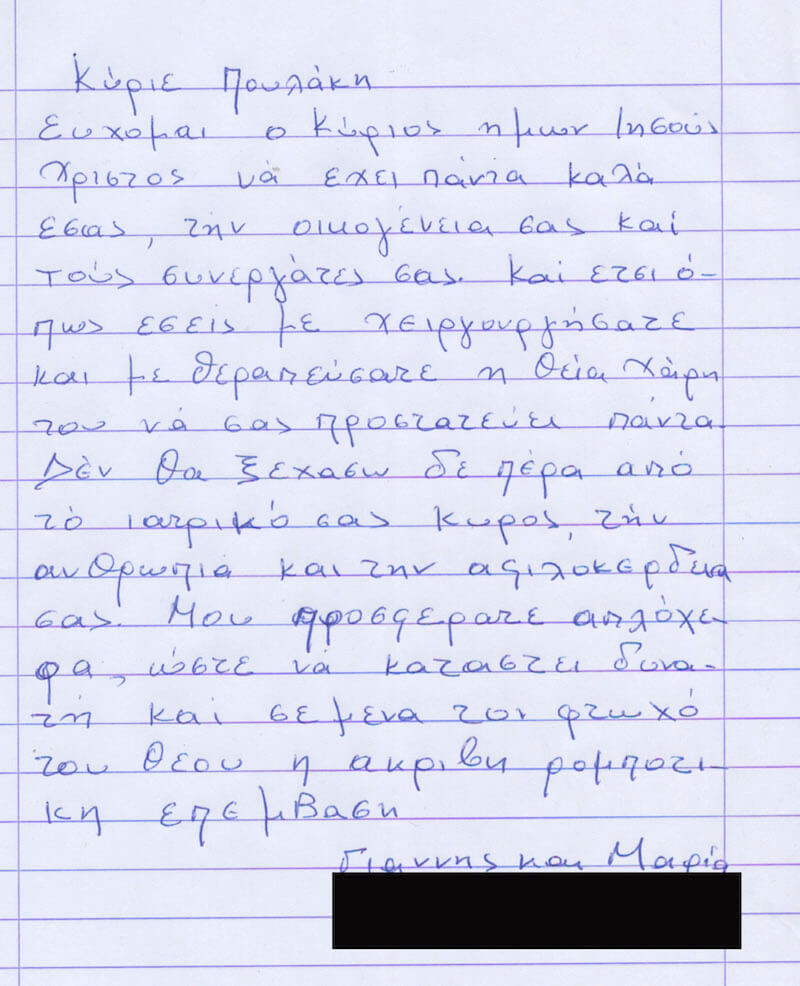 Κύριε Πουλάκη
Ευχομαι ο Κύριος ημων Ιησούς
Χριστος νά εχει πάντα καλά
εσας, την οικογένεια σας καί
τούς συνεργάτες σας. Καί ετσι ό-
πως εσείς με χειργουργήσατε
και με θεραπεύσατε η θεία Χάρη
του νά σας προστατεύει πάντα.
Δέν θα ξεχασω δε πέρα από
τό ιατρικό σας κυρος, την
ανθρωπια και την αφιλοκερδεια
σας. Μου προσφερατε απλόχε-
ρα, ώστε νά καταστει δυνα-
τή καί σε μενα τον φτωχό
του Θεου η ακριβη ρομποτι-
κη επεμβαση
Γιαννης και Μαρία